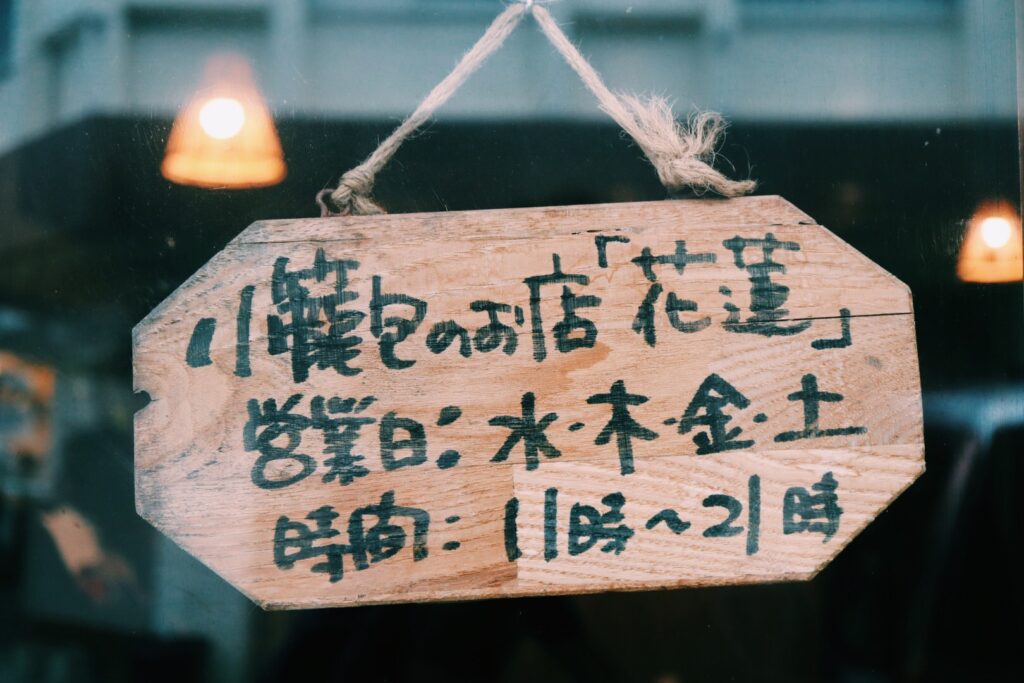 小籠包のお店「花蓮」
営業日:水・木・金・土
時間:11時〜21時